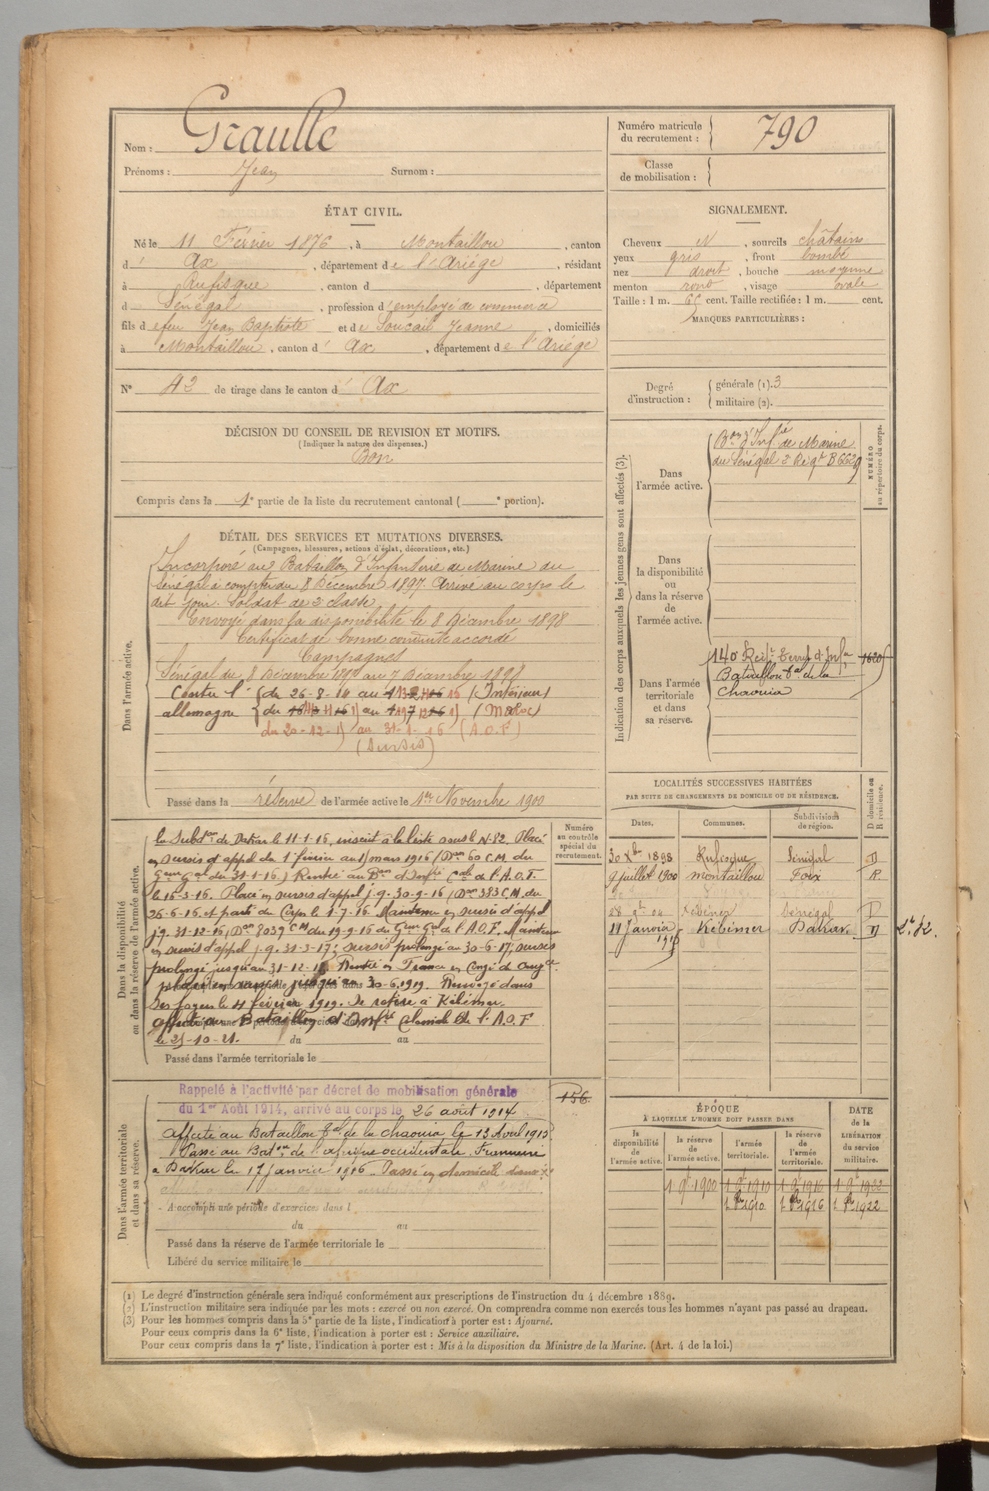 Nom : Graulle
Prénoms : Jean Surnom :
Numéro matricule du recrutement : 790
Classe de mobilisation :
ÉTAT CIVIL.
Né le 11 Février 1876, à Montaillou, canton
d' Ax, département de l'Ariège, résidant
à Rufisque, canton d , département
d Sénégal, profession d'employé de commerce
fils de feu Jean Baptiste et de Soucail Jeanne, domiciliés
à Montaillou, canton d' Ax, département de l'Ariège
SIGNALEMENT.
Cheveux N, sourcils châtains
yeux gris, front bombé
nez droit, bouche moyenne
menton rond, visage ovale
Taille : 1 m. cent. Taille rectifiée : 1 m. cent.
MARQUES PARTICULIÈRES :
N° 42 de tirage dans le canton d' Ax
Degré d'instruction : générale (1). 3
militaire (2).
DÉCISION DU CONSEIL DE REVISION ET MOTIFS.
(Indiquer la nature des dispenses.)
Bon
Compris dans la 1e partie de la liste du recrutement cantonal ( e portion).
DÉTAIL DES SERVICES ET MUTATIONS DIVERSES.
(Campagnes, blessures, actions d'éclat, décorations, etc.)
Dans l'armée active.
Incorporé au Bataillon d'Infanterie de Marine du
Sénégal à compter du 8 Décembre 1897. Arrivé au corps le
dit jour. Soldat de 2e classe
Envoyé dans la disponibilité le 8 Décembre 1898
Certificat de bonne conduite accordé
Campagnes
Sénégal du 8 Décembre 1897 au 7 Décembre 1898
Contre l' du 26-8-14 au (Intérieur)
allemagne du au (Maroc)
du 20-12-1 au 31-1-16 (A.O.F)
(Sursis)
Passé dans la réserve de l'armée active le 1er Novembre 1900
Indication des corps auxquels les jeunes gens sont affectés (3).
NUMÉRO au répertoire du corps.
Dans l'armée active.
Bon d'Infie de Marine
du Sénégal 2e Reg
Dans la disponibilité ou dans la réserve de l'armée active.
Dans l'armée territoriale et dans sa réserve.
140 Regt Territ d'Infie
Bataillon tal de la
Chaouia
Dans la disponibilité ou dans la réserve de l'armée active.
Numéro au contrôle spécial du recrutement.
le Subson de Dakar le 11-1-16, inscrit à la liste sous le N 82. Placé
en sursis d'appel du 1 février au 1 mars 1916 (Don 60 C.M. du
31-1-16) Rentré au Bon d'Infie Cale de l'A.O.F.
le 16-3-16. Placé en sursis d'appel j.q. 30-9-16 (Don 383 C.M. du
26-6-16 et parti du Corps le 1-7-16. Maintenu en sursis d'appel
j.q. 31-12-16 du 19-9-16 du Gal de l'A.O.F. Maintenu
en sursis d'appel j.q. 31-3-17; sursis prolongé au 30-6-17; sursis
prolongé jusqu'au 31-12-1 Rentré en France en Congé de
30-6.1919. Renvoyé dans
ses foyers le 11 février 1919. Se retire à Kébémer.
affecté au Bataillon d'Infie Coloniale de l'A.O.F
le 25-10-21. du au
Passé dans l'armée territoriale le
LOCALITÉS SUCCESSIVES HABITÉES
PAR SUITE DE CHANGEMENTS DE DOMICILE OU DE RÉSIDENCE.
Dates. Communes. Subdivisions de région. D domicile ou R résidence.
30 Xbre 1898 Rufisque Sénégal D
9 juillet 1900 Montaillou Foix R
28 9bre 04 Kébémer Sénégal D
11 Janvier 1916 Kébémer Dakar D
Dans l'armée territoriale et dans sa réserve.
Rappelé à l'activité par décret de mobilisation générale
du 1er Août 1914, arrivé au corps le 26 août 1914
156
Affecté au Bataillon tal de la chaouia le 13 Avril 1915
Passé au Baton de l'afrique occidentale
à Dakar le 17 janvier 1916. Passé en domicile dans
A accompli une période d'exercices dans l
du au
Passé dans la réserve de l'armée territoriale le
Libéré du service militaire le
ÉPOQUE
À LAQUELLE L'HOMME DOIT PASSER DANS
la disponibilité de l'armée active. la réserve de l'armée active. l'armée territoriale. la réserve de l'armée territoriale.
DATE DE LA LIBÉRATION DU SERVICE MILITAIRE.
1 9bre 1900 1 9bre 1910 1 9bre 1916 1 9bre 1922
1 8bre 1910 1 8bre 1916 1 8bre 1922
(1) Le degré d'instruction générale sera indiqué conformément aux prescriptions de l'instruction du 4 décembre 1889.
(2) L'instruction militaire sera indiquée par les mots : exercé ou non exercé. On comprendra comme non exercés tous les hommes n'ayant pas passé au drapeau.
(3) Pour les hommes compris dans la 5e partie de la liste, l'indication à porter est : Ajourné.
Pour ceux compris dans la 6e liste, l'indication à porter est : Service auxiliaire.
Pour ceux compris dans la 7e liste, l'indication à porter est : Mis à la disposition du Ministre de la Marine. (Art. 4 de la loi.)